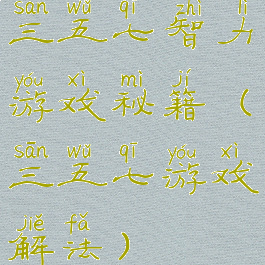 sān wǔ qī zhì lì
三五七智力
yóu xì mì jí
游戏秘籍(
sān wǔ qī yóu xì
三五七游戏
jiě fǎ
解法)